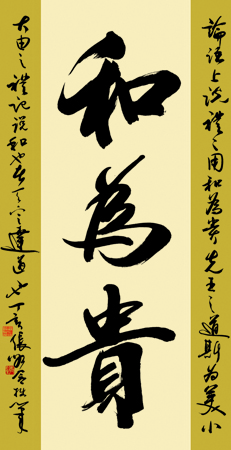 和為貴
論語上說禮之用和為貴先王之道斯為美小
大由之禮記說和也者天下之達道也丁亥張拙筆